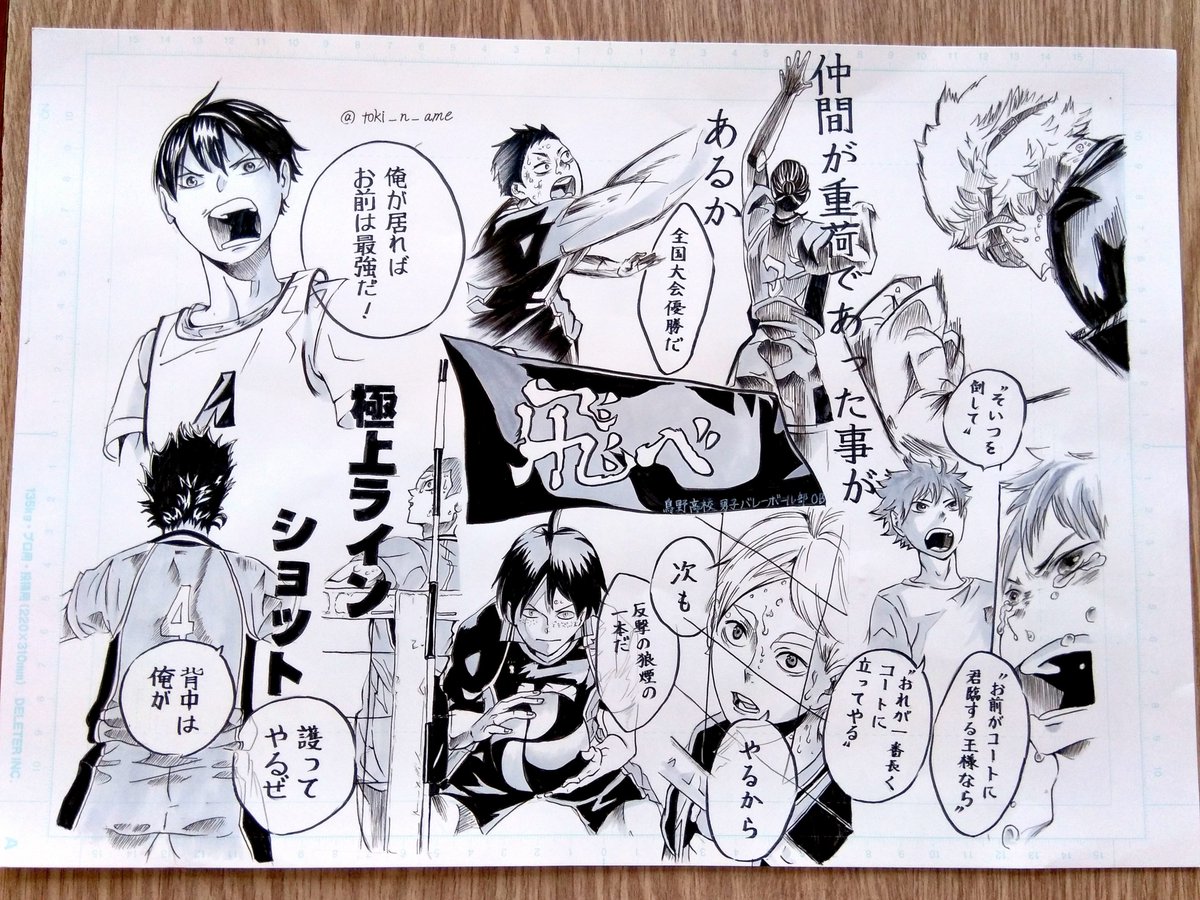 @toki_n_ame
仲間が重荷であった事が
あるか
全国大会優勝だ
俺が居れば
お前は最強だ!
〝そいつを
倒して〟
〝お前がコートに
君臨する王様なら〟
〝おれが一番長く
コートに
立ってやる〟
飛べ
烏野高校 男子バレーボール部OB
次も
やるから
反撃の狼煙の
一本だ
極上ライン
ショット
4
背中は
俺が
護って
やるぜ
DELETER INC.
A